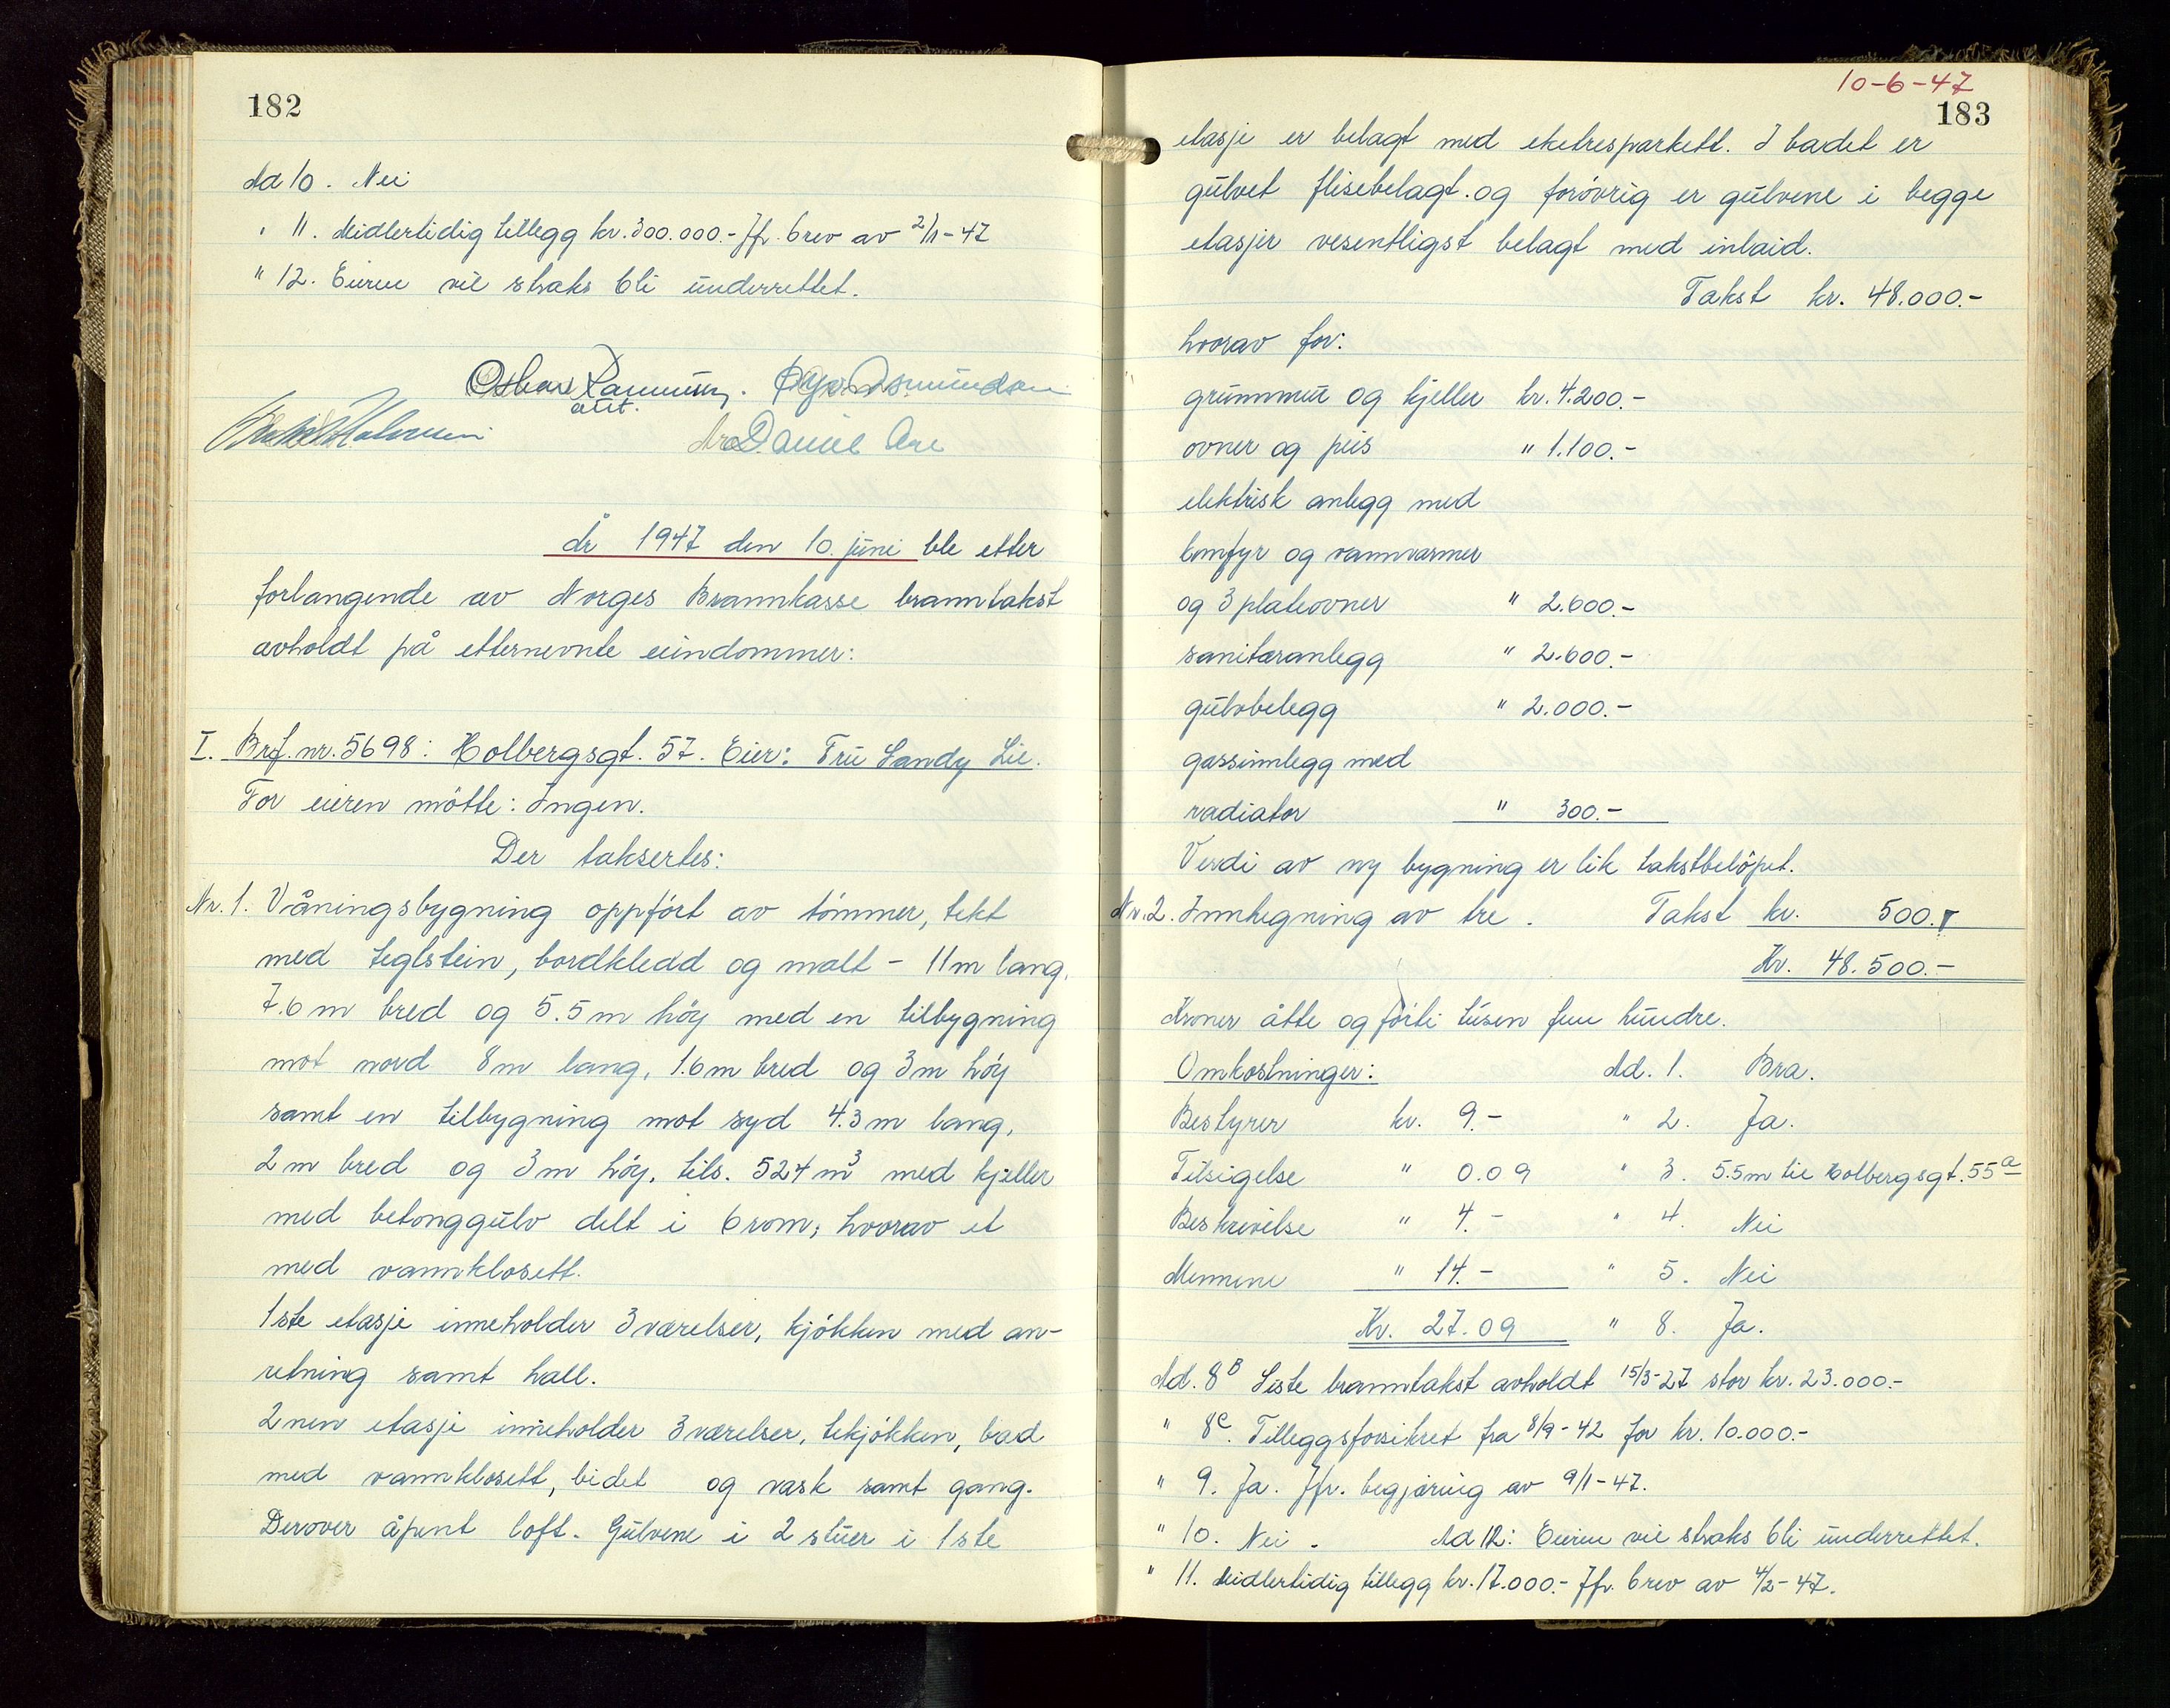 182
Ad 10. Nei
" 11. Midlertidig tillegg kr. 300.000.- Jfr. brev av 2/1-47
" 12. Eieren vil straks bli underrettet.
Daniel
År 1947 den 10. juni ble etter
forlangende av Norges Brannkasse branntakst
avholdt på etternevnte eiendommer:
I. Brf. nr. 5698: Holbergsgt. 57. Eier: Fru Sandy Lie.
For eieren møtte: Ingen.
Der taksertes:
Nr. 1. Våningsbygning oppført av tømmer, tekt
med teglstein, bordkledd og malt - 11m lang,
7.6 m bred og 5.5 m høy med en tilbygning
mot nord 8m lang, 1.6m bred og 3m høy
samt en tilbygning mot syd 4.3m lang,
2m bred og 3m høy, tils. 524 m³ med kjeller
med betonggulv delt i 6 rom, hvorav et
med vannklosett.
1ste etasje inneholder 3 værelser, kjøkken med an-
retning samt hall.
2nen etasje inneholder 3 værelser, tekjøkken, bad
med vannklosett, bidet og vask samt gang.
Derover åpent loft. Gulvene i 2 stuer i 1ste
10-6-47
183
etasje er belagt med eketresparkett. I badet er
gulvet flisebelagt og forøvrig er gulvene i begge
etasjer vesentligst belagt med inlaid.
Takst kr. 48.000.-
hvorav for:
grunnmur og kjeller kr. 4.200.-
ovner og peis " 1.100.-
elektrisk anlegg med
komfyr og vannvarmer
og 3 plateovner " 2.600.-
sanitæranlegg " 2.600.-
gulvbelegg " 2.000.-
gassinnlegg med
radiator " 300.-
Verdi av ny bygning er lik takstbeløpet.
Nr. 2. Innhegning av tre. Takst kr. 500.-
Kr. 48.500.-
Kroner åtte og førti tusen fem hundre.
Omkostninger: Ad. 1. Bra.
Bestyrer kr. 9.- " 2. Ja.
Tilsigelse " 0.09 " 3. 5.5m til Holbergsgt. 55a
Beskrivelse " 4.- " 4. Nei
Mennene " 14.- " 5. Nei
Kr. 27.09 " 8. Ja.
Ad. 8B Siste branntakst avholdt 15/3-27 stor kr. 23.000.-
" 8C. Tilleggsforsikret fra 8/9-42 for kr. 10.000.-
" 9. Ja. Jfr. begjæring av 9/1-47.
" 10. Nei. Ad 12: Eieren vil straks bli underrettet.
" 11. Midlertidig tillegg kr. 17.000.- Jfr. brev av 4/2-47.